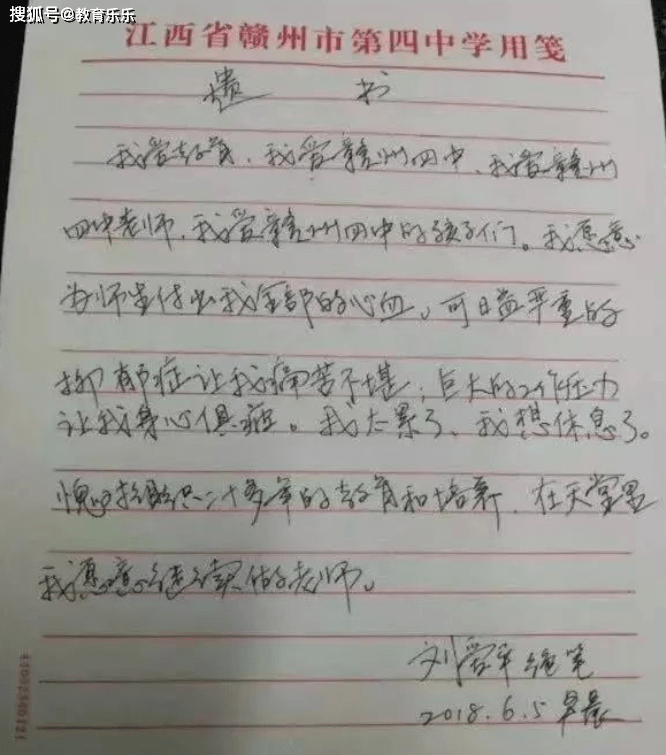 搜狐号@教育乐乐
江西省赣州市第四中学用笺
遗 书
我爱教育、我爱赣州四中、我爱赣州
四中老师，我爱赣州四中的孩子们。我愿意
为师生付出我全部的心血，可日益严重的
抑郁症让我痛苦不堪，巨大的工作压力
让我身心俱疲。我太累了、我想休息了。
愧对组织二十多年的教育和培养，在天堂里
我愿意继续做老师。
刘爱平绝笔
2018.6.5 早晨